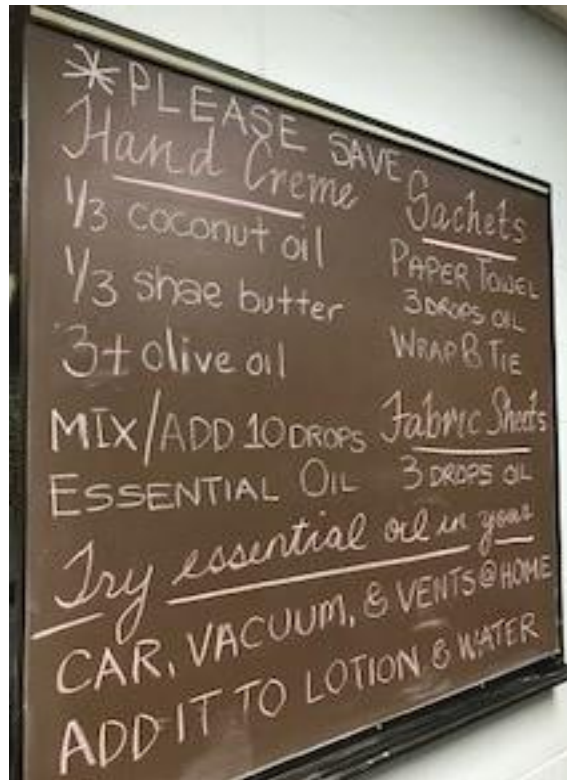 *PLEASE SAVE
Hand Creme
1/3 coconut oil
1/3 shae butter
3t olive oil
MIX/ADD 10 DROPS
ESSENTIAL OIL
Sachets
PAPER TOWEL
3 DROPS OIL
WRAP & TIE
Fabric Sheets
3 DROPS OIL
Try essential oil in your
CAR, VACUUM, & VENTS @ HOME
ADD IT TO LOTION & WATER